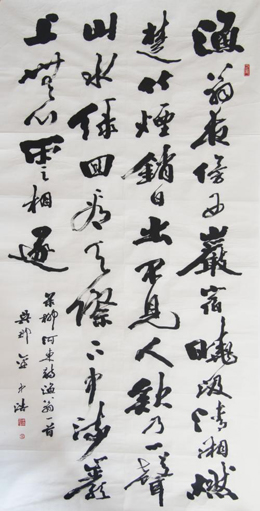 漁翁夜傍西巖宿曉汲清湘燃
楚竹煙銷日出不見人欸乃一聲
山水綠回看天際下中流巖
上無心雲相逐
柳河東詩漁翁一首